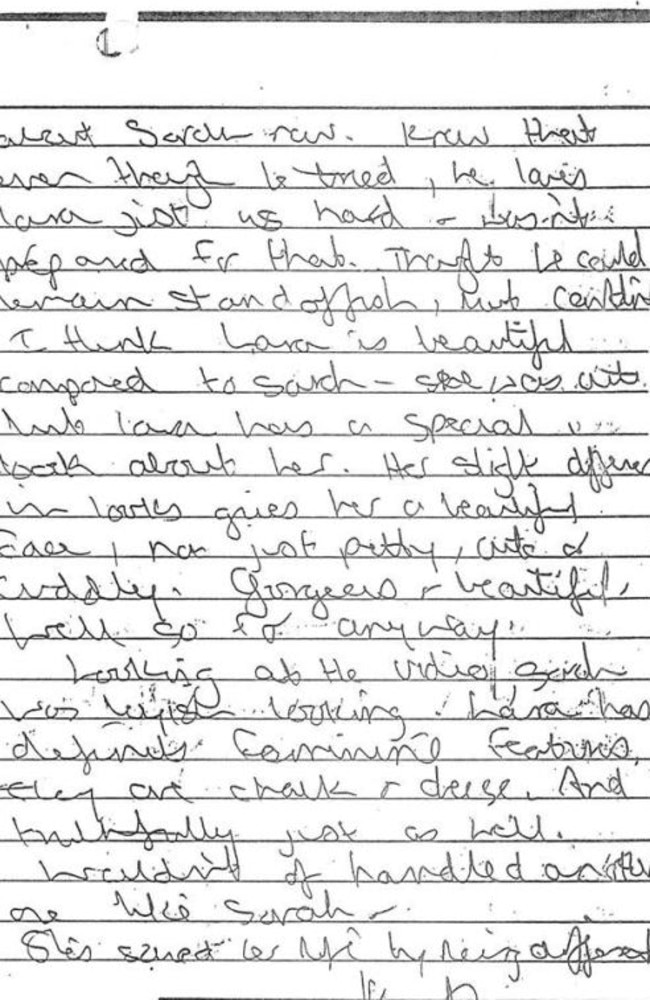 about Sarah now. Knew that
even though he tried, he loves
Laura just as hard - wasn't
prepared for that. Thought he could
remain standoffish, but
I think Laura is beautiful
compared to Sarah - she was cute
but Laura has a special
look about her. Her slight
in looks gives her a beautiful
face, not just pretty, cute &
cuddly. Gorgeous & beautiful.
Well so far anyway.
Looking at the video, Sarah
was boyish looking. Laura has
definite feminine features,
they are chalk & cheese. And
truthfully just as well.
Wouldn't of handled another
one like Sarah -
She's saved her life by being different